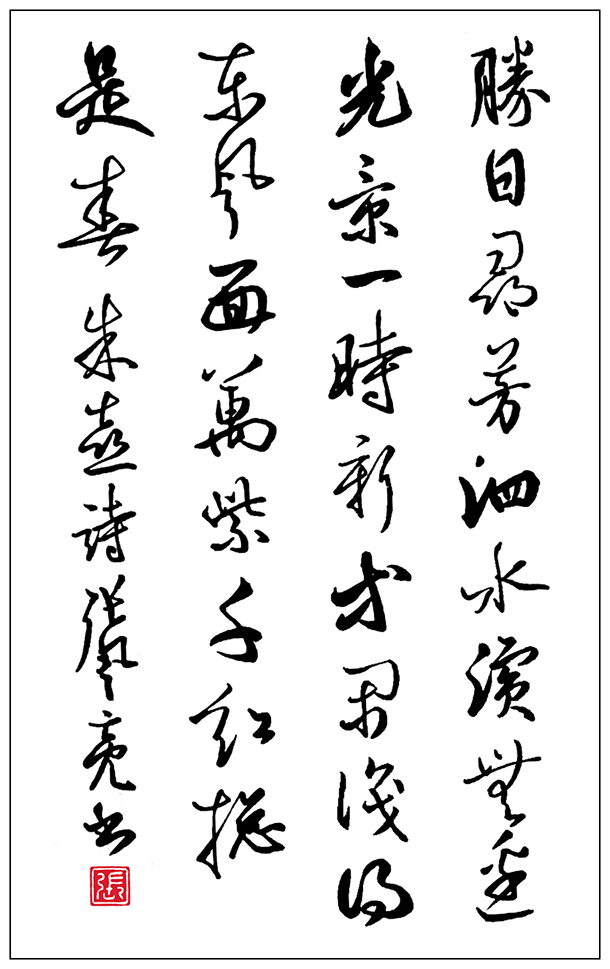 勝日尋芳泗水濱無邊
光景一時新等閒識得
東風面萬紫千紅總
是春朱熹詩張亮书
張